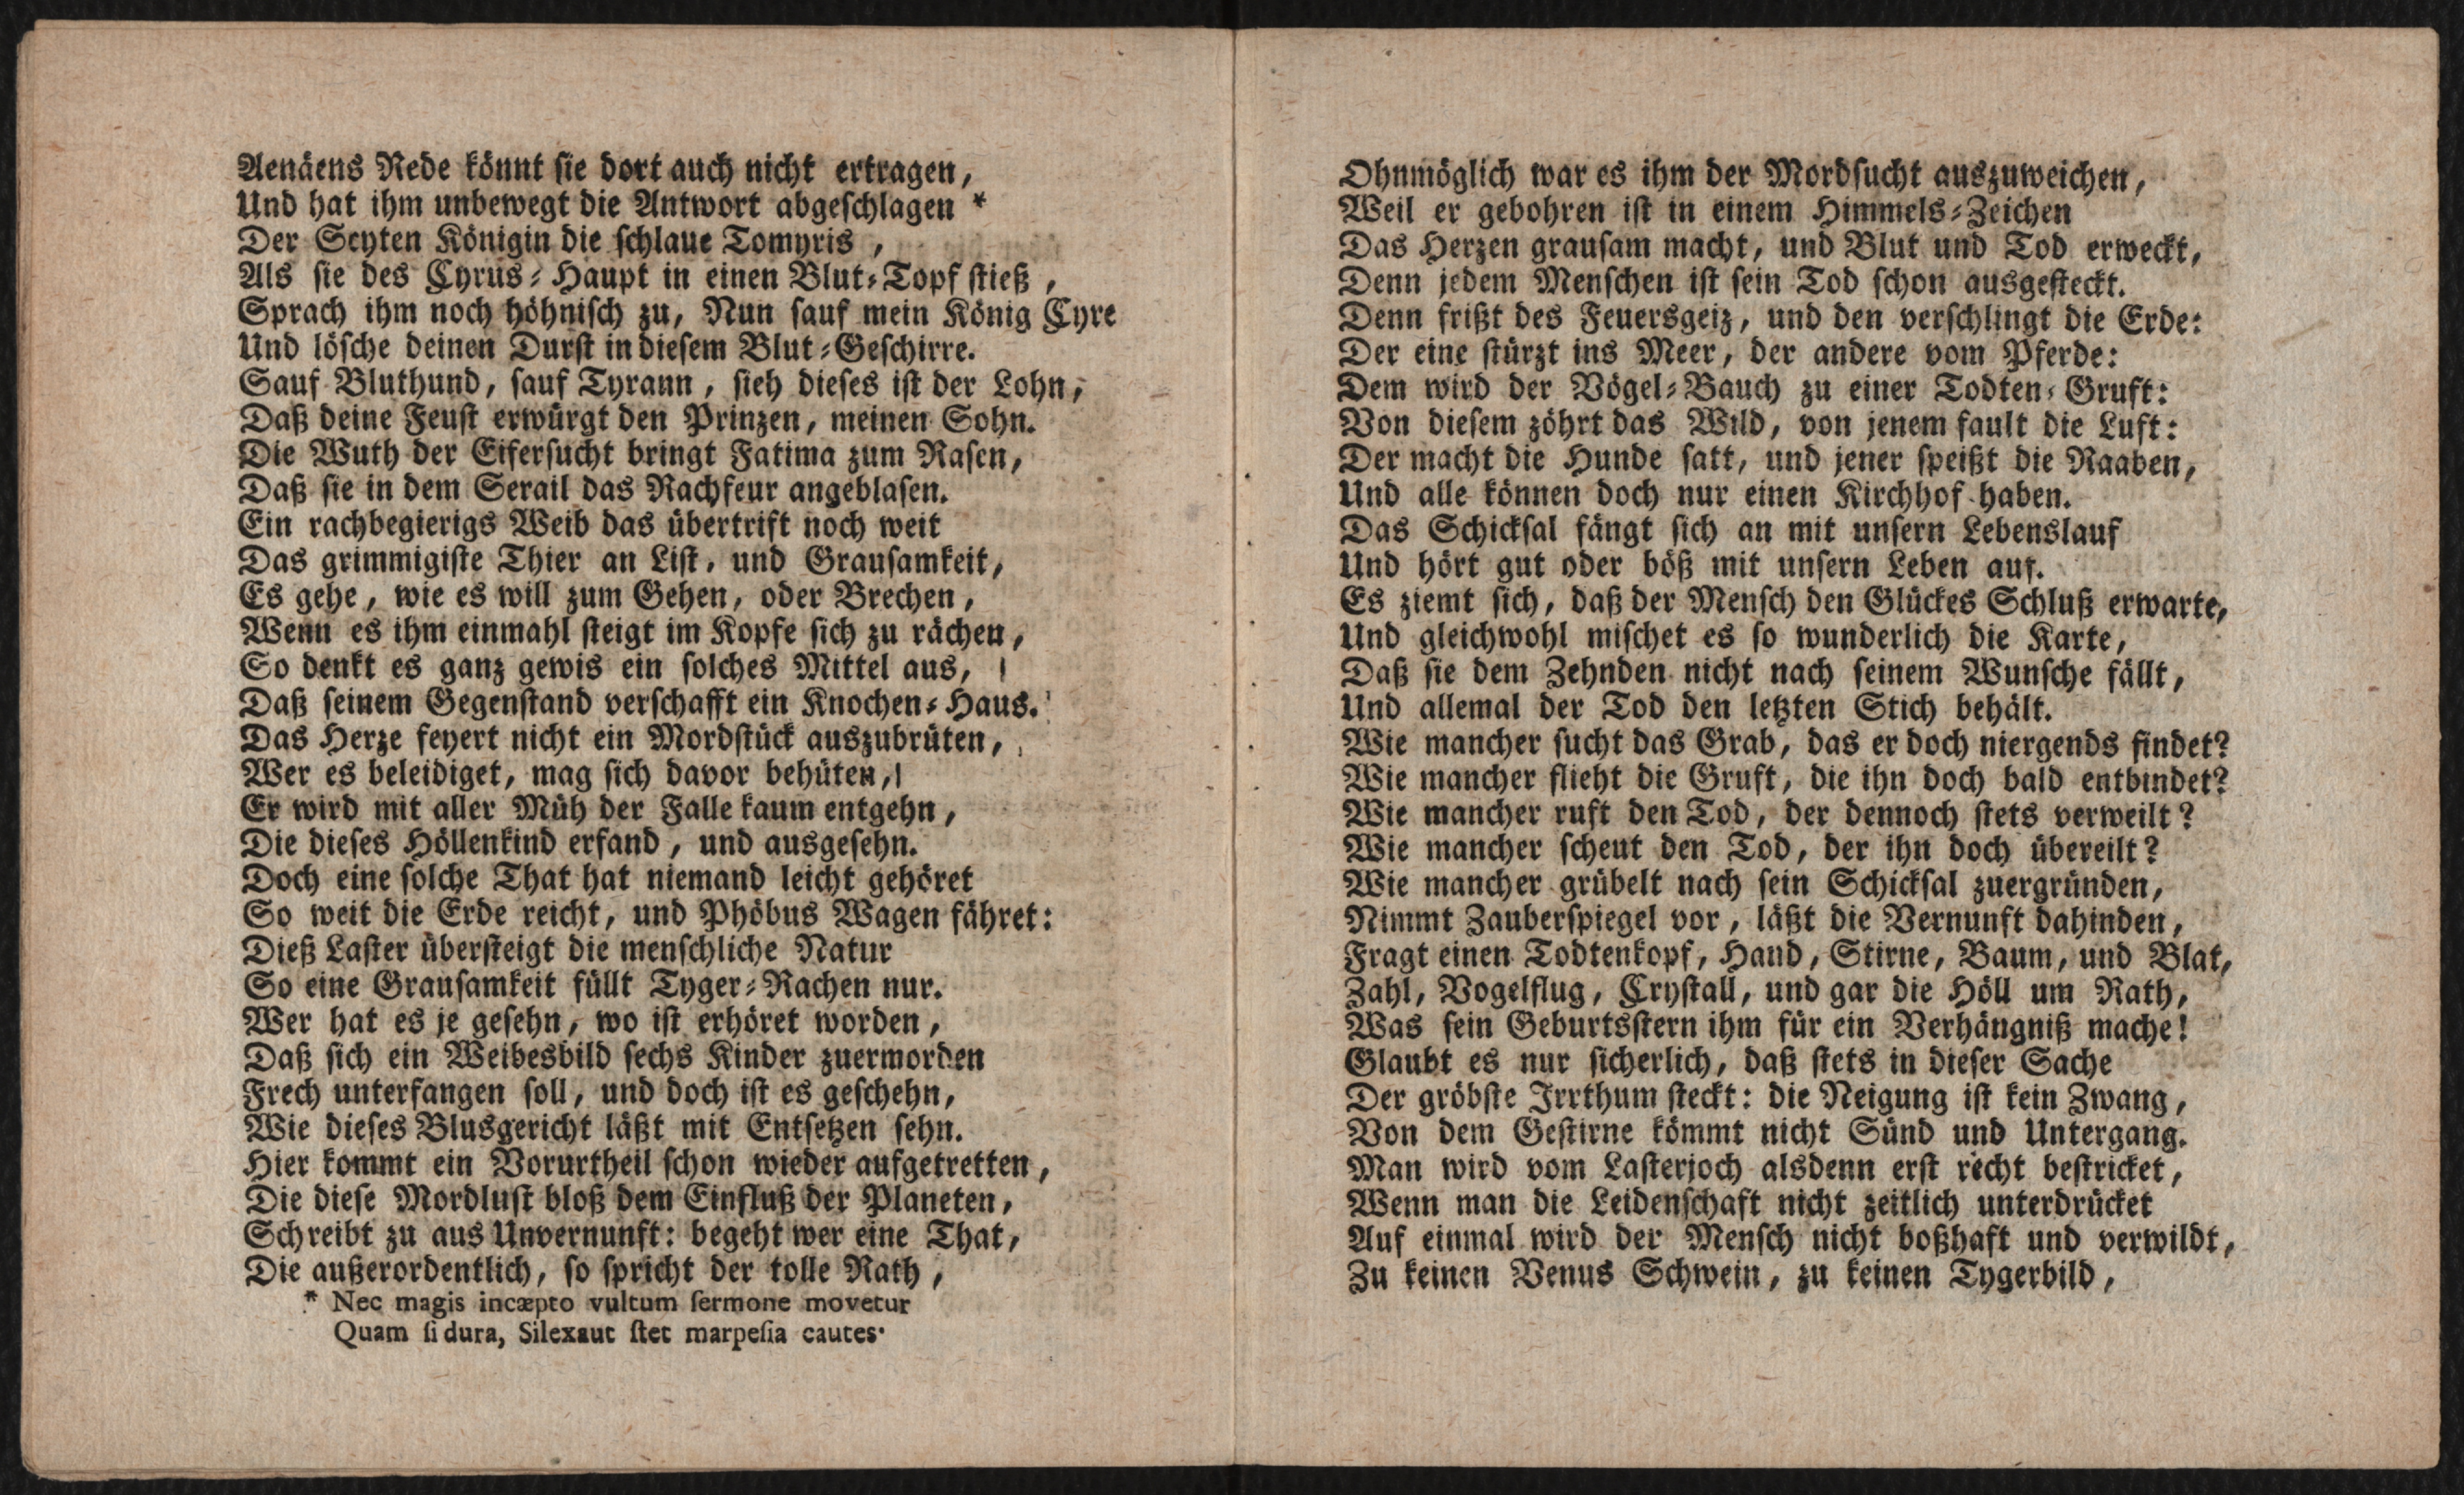 Aenäens Rede könnt sie dort auch nicht ertragen,
Und hat ihm unbewegt die Antwort abgeschlagen *
Der Scyten Königin die schlaue Tomyris,
Als sie des Cyrus-Haupt in einen Blut-Topf stieß,
Sprach ihm noch höhnisch zu, Nun sauf mein König Cyre
Und lösche deinen Durst in diesem Blut-Geschirre.
Sauf Bluthund, sauf Tyrann, sieh dieses ist der Lohn,
Daß deine Feust erwürgt den Prinzen, meinen Sohn.
Die Wuth der Eifersucht bringt Fatima zum Rasen,
Daß sie in dem Serail das Rachfeur angeblasen.
Ein rachbegierigs Weib das übertrift noch weit
Das grimmigiste Thier an List, und Grausamkeit,
Es gehe, wie es will zum Gehen, oder Brechen,
Wenn es ihm einmahl steigt im Kopfe sich zu rächen,
So denkt es ganz gewis ein solches Mittel aus,
Daß seinem Gegenstand verschafft ein Knochen-Haus.
Das Herze feyert nicht ein Mordstück auszubrüten,
Wer es beleidiget, mag sich davor behüten,
Er wird mit aller Müh der Falle kaum entgehn,
Die dieses Höllenkind erfand, und ausgesehn.
Doch eine solche That hat niemand leicht gehöret
So weit die Erde reicht, und Phöbus Wagen fähret:
Dieß Laster übersteigt die menschliche Natur
So eine Grausamkeit füllt Tyger-Rachen nur.
Wer hat es je gesehn, wo ist erhöret worden,
Daß sich ein Weibesbild sechs Kinder zuermorden
Frech unterfangen soll, und doch ist es geschehn,
Wie dieses Blusgericht läßt mit Entsetzen sehn.
Hier kommt ein Vorurtheil schon wieder aufgetretten,
Die diese Mordlust bloß dem Einfluß der Planeten,
Schreibt zu aus Unvernunft: begeht wer eine That,
Die außerordentlich, so spricht der tolle Rath,
* Nec magis incæpto vultum sermone movetur
Quam si dura, Silexaut stet marpesia cautes·
Ohnmöglich war es ihm der Mordsucht auszuweichen,
Weil er gebohren ist in einem Himmels-Zeichen
Das Herzen grausam macht, und Blut und Tod erweckt,
Denn jedem Menschen ist sein Tod schon ausgesteckt.
Denn frißt des Feuersgeiz, und den verschlingt die Erde:
Der eine stürzt ins Meer, der andere vom Pferde:
Dem wird der Vögel-Bauch zu einer Todten-Gruft:
Von diesem zöhrt das Wild, von jenem fault die Luft:
Der macht die Hunde satt, und jener speißt die Raaben,
Und alle können doch nur einen Kirchhof haben.
Das Schicksal fängt sich an mit unsern Lebenslauf
Und hört gut oder böß mit unsern Leben auf.
Es ziemt sich, daß der Mensch den Glückes Schluß erwarte,
Und gleichwohl mischet es so wunderlich die Karte,
Daß sie dem Zehnden nicht nach seinem Wunsche fällt,
Und allemal der Tod den letzten Stich behält.
Wie mancher sucht das Grab, das er doch niergends findet?
Wie mancher flieht die Gruft, die ihn doch bald entbindet?
Wie mancher ruft den Tod, der dennoch stets verweilt?
Wie mancher scheut den Tod, der ihn doch übereilt?
Wie mancher grübelt nach sein Schicksal zuergründen,
Nimmt Zauberspiegel vor, läßt die Vernunft dahinden,
Fragt einen Todtenkopf, Hand, Stirne, Baum, und Blat,
Zahl, Vogelflug, Crystall, und gar die Höll um Rath,
Was sein Geburtsstern ihm für ein Verhängniß mache!
Glaubt es nur sicherlich, daß stets in dieser Sache
Der gröbste Irrthum steckt: die Neigung ist kein Zwang,
Von dem Gestirne kömmt nicht Sünd und Untergang.
Man wird vom Lasterjoch alsdenn erst recht bestricket,
Wenn man die Leidenschaft nicht zeitlich unterdrücket
Auf einmal wird der Mensch nicht boßhaft und verwildt,
Zu keinen Venus Schwein, zu keinen Tygerbild,